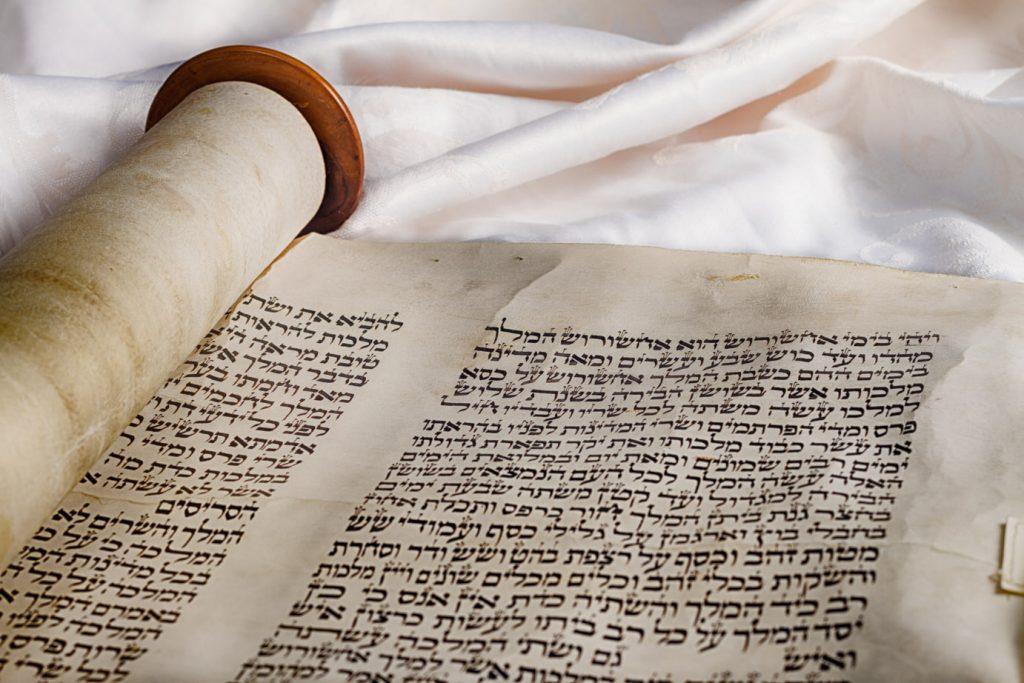 ויהי בימי אחשורוש הוא אחשורוש המלך
מהדו ועד כוש שבע ועשרים ומאה מדינה
בימים ההם כשבת המלך אחשורוש על כסא
מלכותו אשר בשושן הבירה בשנת שלוש
למלכו עשה משתה לכל שריו ועבדיו חיל
פרס ומדי הפרתמים ושרי המדינות לפניו בהראתו
את עשר כבוד מלכותו ואת יקר תפארת גדולתו
ימים רבים שמונים ומאת יום ובמלואת הימים
האלה עשה המלך לכל העם הנמצאים בשושן
הבירה למגדול ועד קטן משתה שבעת ימים
בחצר גנת ביתן המלך חור כרפס ותכלת אחוז
בחבלי בוץ וארגמן על גלילי כסף ועמודי שש
מטות זהב וכסף על רצפת בהט ושש ודר וסחרת
והשקות בכלי זהב וכלים מכלים שונים ויין מלכות
רב כיד המלך והשתיה כדת אין אנס כי כן
יסד המלך על כל רב ביתו לעשות כרצון איש
ואיש גם ושתי המלכה עשתה
אשר למלך אחשורוש
להביא את ושתי
מלכות להראות
טובת מראה היא
בדבר המלך
מאד וחמתו בערה
המלך לחכמים
לפני כל ידעי דת
אדמתא תרשיש
שרי פרס ומדי
במלכות כדת מה
אשר לא עשתה
הסריסים
המלך והשרים לא
המלכה כי על
בכל מדינות
המלכה על כל
באמרם המלך
המלכה לפניו
שרות פרס
לכל שרי